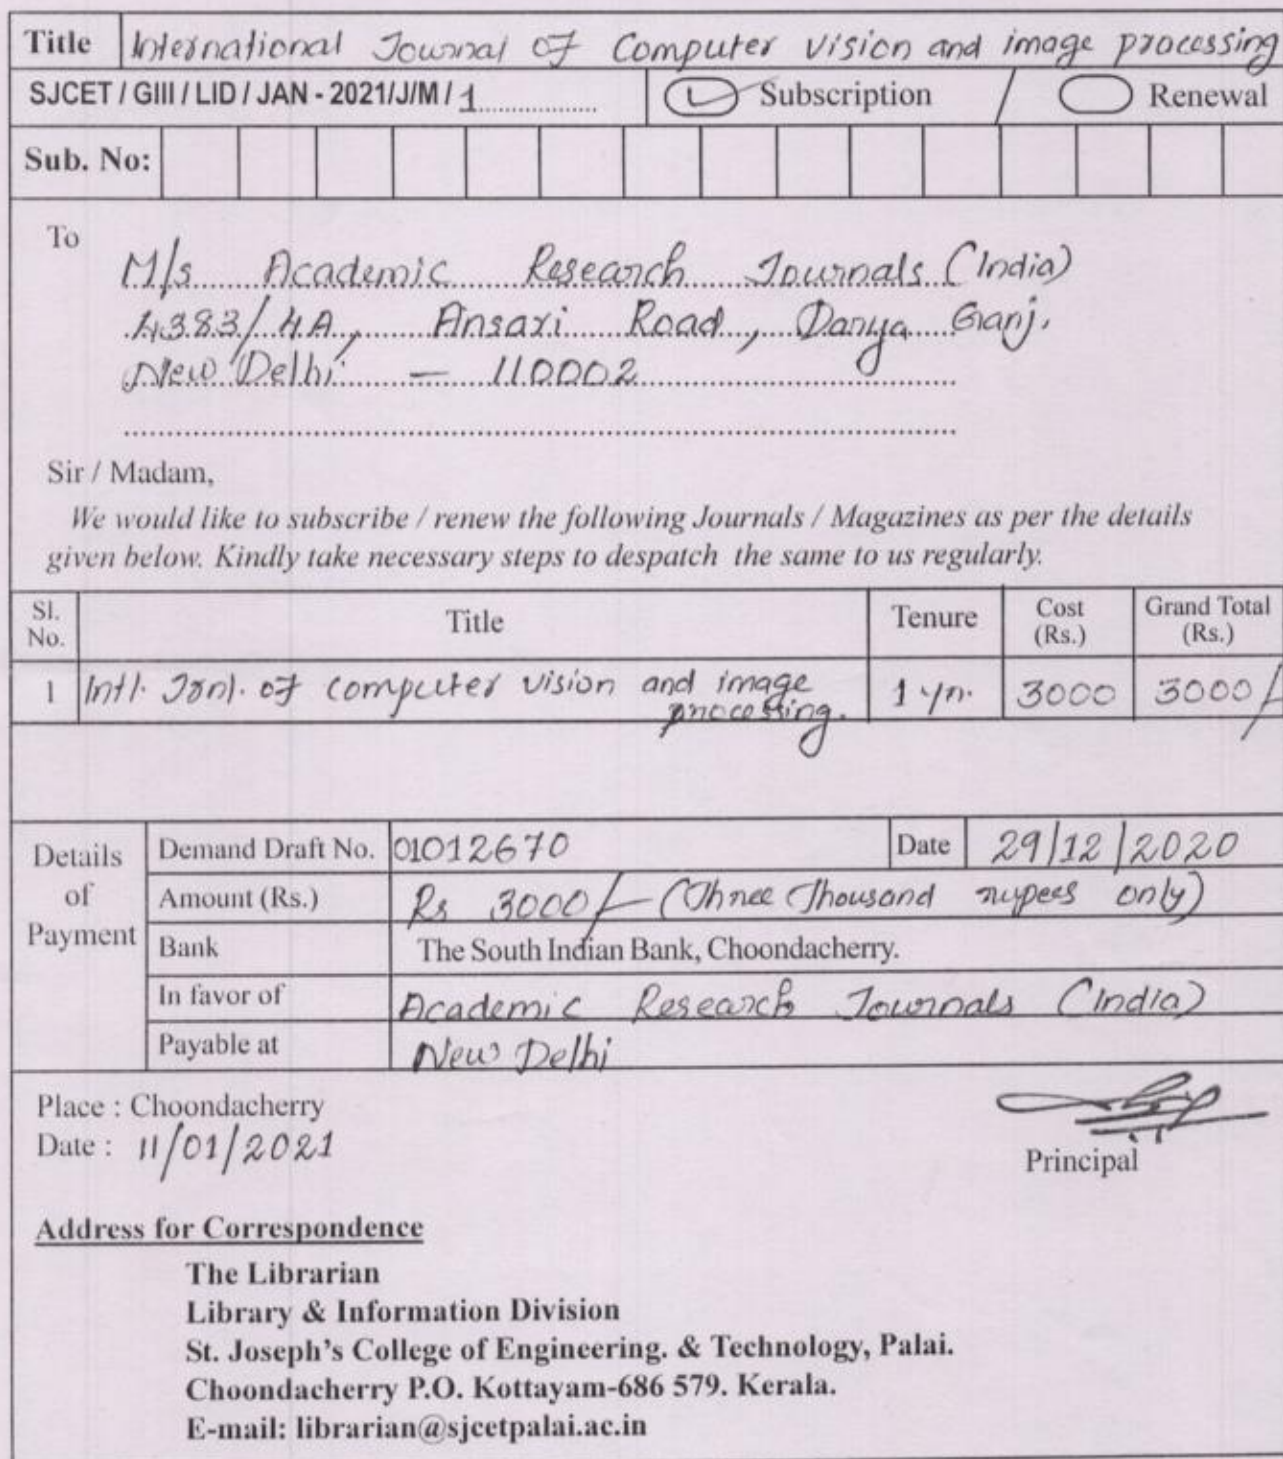 Title International Journal of Computer vision and image processing
SJCET / GIII / LID / JAN - 2021/J/M / 1 Subscription / Renewal
Sub. No:
To
M/s Academic Research Journals (India)
4383/4A, Ansari Road, Darya Ganj,
New Delhi - 110002
Sir / Madam,
We would like to subscribe / renew the following Journals / Magazines as per the details
given below. Kindly take necessary steps to despatch the same to us regularly.
Sl. No. Title Tenure Cost (Rs.) Grand Total (Rs.)
1 Intl. Jrnl. of computer vision and image processing. 1 yr. 3000 3000/-
Details of Payment
Demand Draft No. 01012670 Date 29/12/2020
Amount (Rs.) Rs 3000/- (Three Thousand rupees only)
Bank The South Indian Bank, Choondacherry.
In favor of Academic Research Journals (India)
Payable at New Delhi
Place : Choondacherry
Date : 11/01/2021
Principal
Address for Correspondence
The Librarian
Library & Information Division
St. Joseph's College of Engineering. & Technology, Palai.
Choondacherry P.O. Kottayam-686 579. Kerala.
E-mail: librarian@sjcetpalai.ac.in